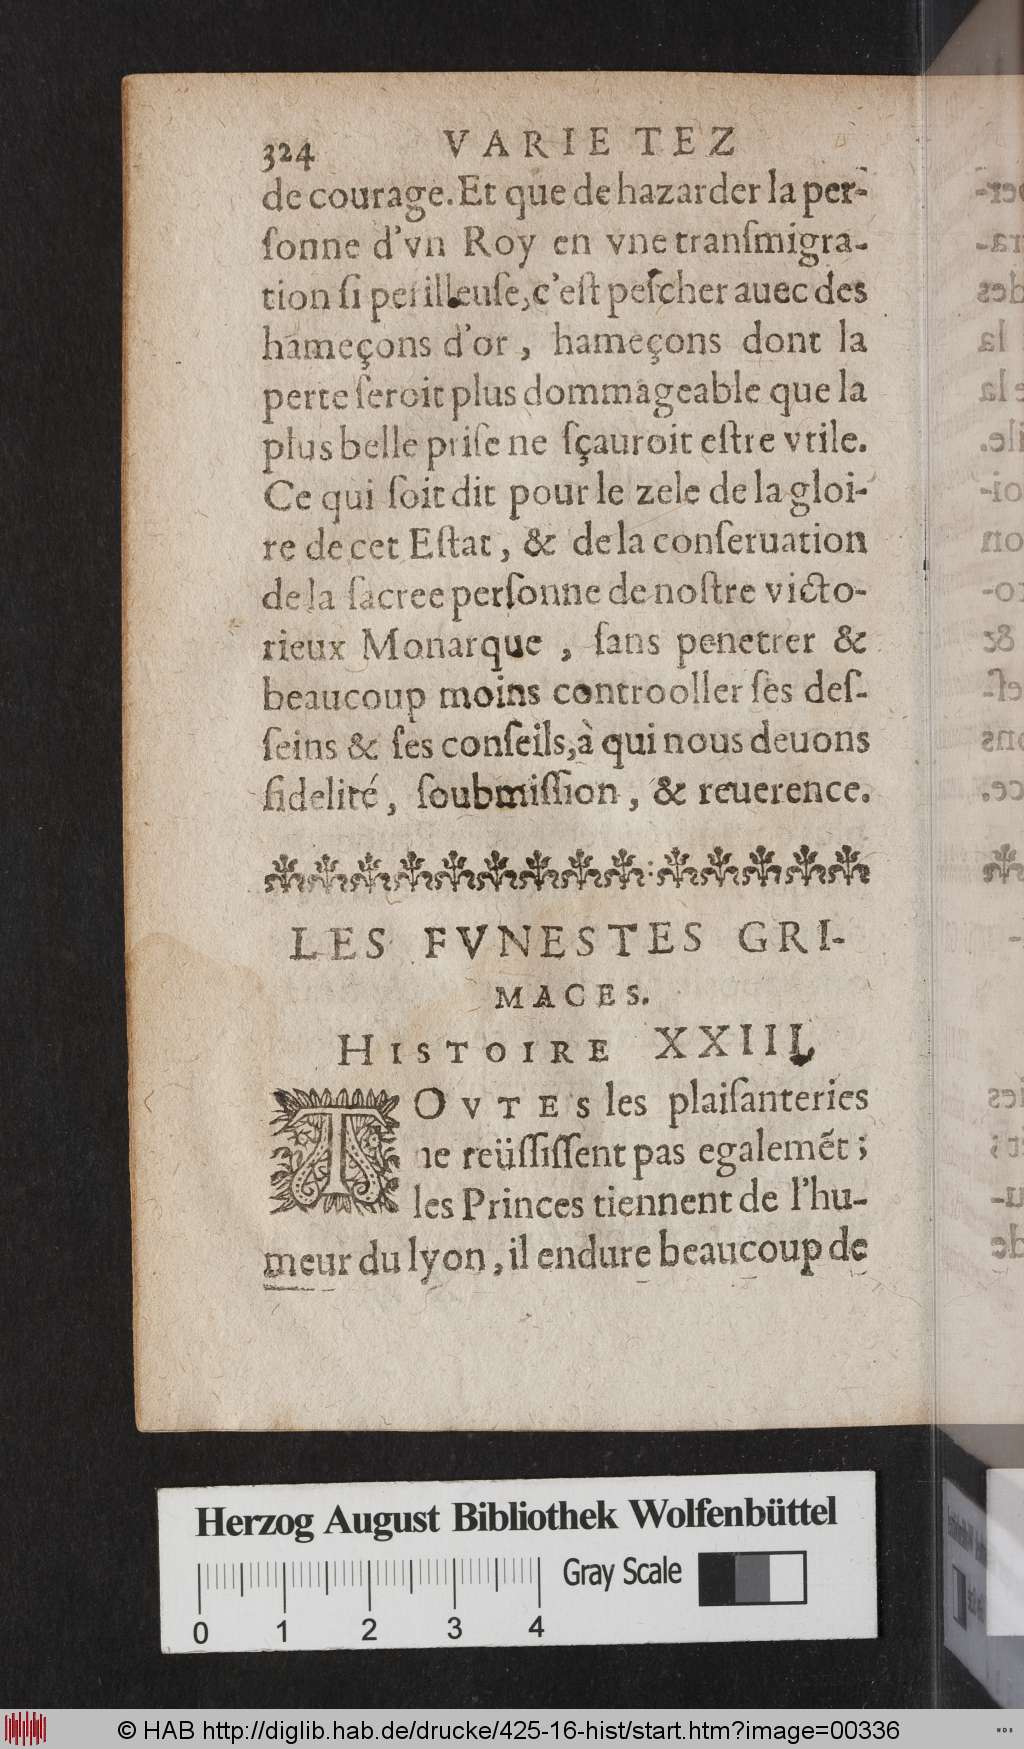 324 VARIETEZ
de courage. Et que de hazarder la per-
ſonne d'vn Roy en vne tranſmigra-
tion ſi perilleuſe, c'eſt peſcher auec des
hameçons d'or, hameçons dont la
perte ſeroit plus dommageable que la
plus belle priſe ne ſçauroit eſtre vtile.
Ce qui ſoit dit pour le zele de la gloi-
re de cet Eſtat, & de la conſeruation
de la ſacree perſonne de noſtre victo-
rieux Monarque, ſans penetrer &
beaucoup moins controoller ſes deſ-
ſeins & ſes conſeils, à qui nous deuons
fidelité, ſoubmiſſion, & reuerence.
LES FVNESTES GRI-
MACES.
HISTOIRE XXIII.
TOVTES les plaiſanteries
ne reüſſiſſent pas egalemẽt;
les Princes tiennent de l'hu-
meur du lyon, il endure beaucoup de
Herzog August Bibliothek Wolfenbüttel
Gray Scale
0 1 2 3 4
© HAB http://diglib.hab.de/drucke/425-16-hist/start.htm?image=00336